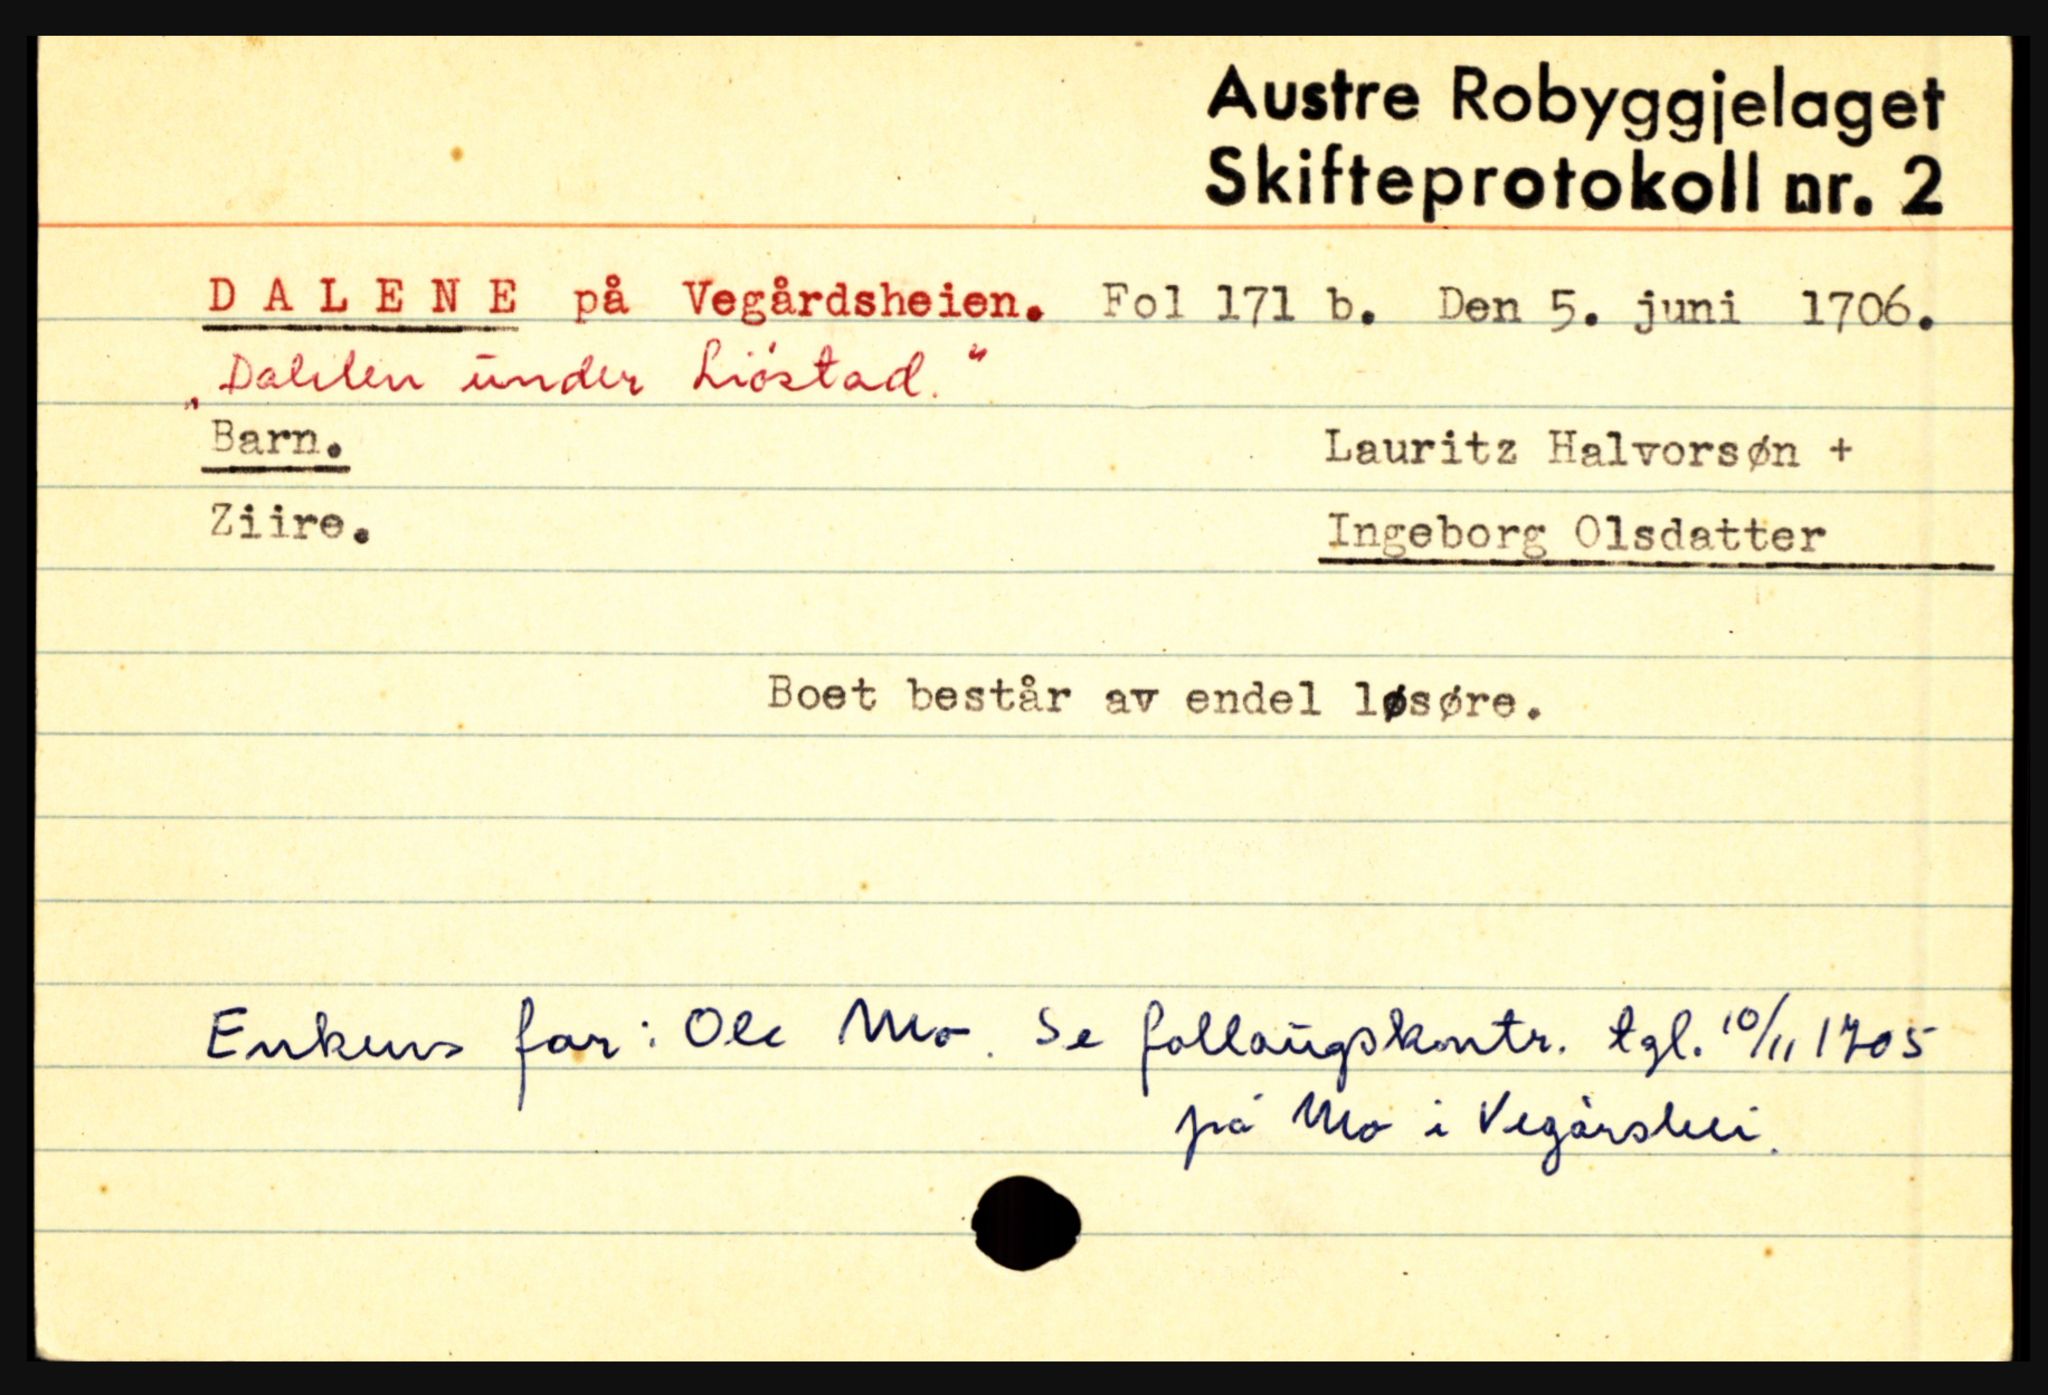 Austre Robyggjelaget
Skifteprotokoll nr. 2
DALENE på Vegårdsheien. Fol 171 b. Den 5. juni 1706.
„Dahlen under Liöstad."
Barn. Lauritz Halvorsøn +
Ziire. Ingeborg Olsdatter
Boet består av endel løsøre.
Enkens far: Ole Mo. Se fallaugskontr. tgl. 10/11 1705
på Mo i Vegårshei.